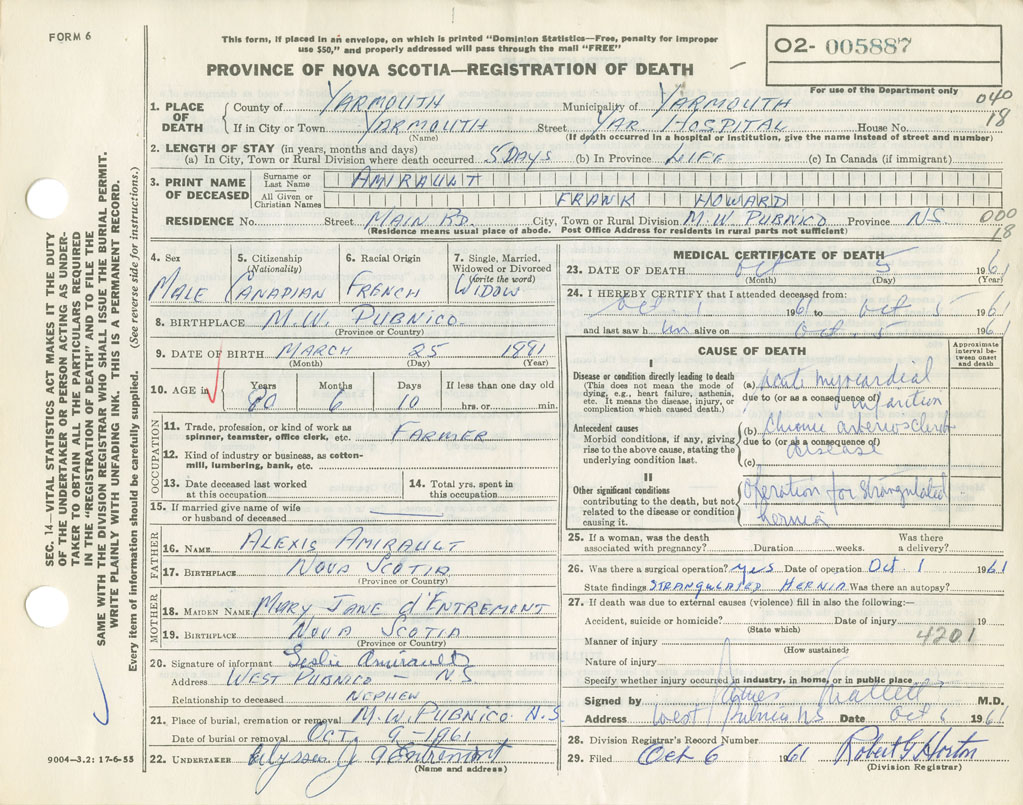 FORM 6
This form, if placed in an envelope, on which is printed "Dominion Statistics—Free, penalty for improper
use $50," and properly addressed will pass through the mail "FREE"
02- 005887
For use of the Department only
PROVINCE OF NOVA SCOTIA—REGISTRATION OF DEATH
040
18
1. PLACE OF DEATH County of YARMOUTH Municipality of YARMOUTH
If in City or Town YARMOUTH Street YAR HOSPITAL House No.
(Name) (If death occurred in a hospital or institution, give the name instead of street and number)
2. LENGTH OF STAY (in years, months and days)
(a) In City, Town or Rural Division where death occurred 5 DAYS (b) In Province LIFE (c) In Canada (if immigrant)
3. PRINT NAME OF DECEASED Surname or Last Name AMIRAULT
All Given or Christian Names FRANK HOWARD
RESIDENCE No. Street MAIN RD. City, Town or Rural Division M.W. PUBNICO Province NS
(Residence means usual place of abode. Post Office Address for residents in rural parts not sufficient)
000
18
4. Sex
MALE
5. Citizenship
(Nationality)
CANADIAN
6. Racial Origin
FRENCH
7. Single, Married,
Widowed or Divorced
(write the word)
WIDOW
8. BIRTHPLACE M.W. PUBNICO
(Province or Country)
9. DATE OF BIRTH MARCH 25 1881
(Month) (Day) (Year)
10. AGE in Years Months Days If less than one day old
80 6 10 hrs. or min.
OCCUPATION
11. Trade, profession, or kind of work as
spinner, teamster, office clerk, etc. FARMER
12. Kind of industry or business, as cotton-
mill, lumbering, bank, etc.
13. Date deceased last worked
at this occupation
14. Total yrs. spent in
this occupation
15. If married give name of wife
or husband of deceased
FATHER
16. NAME ALEXIS AMIRAULT
17. BIRTHPLACE NOVA SCOTIA
(Province or Country)
MOTHER
18. MAIDEN NAME MARY JANE d'ENTREMONT
19. BIRTHPLACE NOVA SCOTIA
(Province or Country)
20. Signature of informant Leslie Amirault
Address WEST PUBNICO - N.S.
Relationship to deceased NEPHEW
21. Place of burial, cremation or removal M.W. PUBNICO N.S.
Date of burial or removal OCT. 9-1961
22. UNDERTAKER Ulysses J d'Entremont
(Name and address)
MEDICAL CERTIFICATE OF DEATH
23. DATE OF DEATH Oct 5 1961
(Month) (Day) (Year)
24. I HEREBY CERTIFY that I attended deceased from:
Oct 1 1961 to Oct 5 1961
and last saw him alive on Oct 5 1961
CAUSE OF DEATH
Approximate
interval be-
tween onset
and death
I
Disease or condition directly leading to death
(This does not mean the mode of
dying, e.g., heart failure, asthenia,
etc. It means the disease, injury, or
complication which caused death.)
(a) acute myocardial
due to (or as a consequence of)
infarction
Antecedent causes
Morbid conditions, if any, giving
rise to the above cause, stating the
underlying condition last.
(b) Chronic arteriosclerot
due to (or as a consequence of)
disease
(c)
II
Other significant conditions
contributing to the death, but not
related to the disease or condition
causing it.
Operation for Strangulated
hernia
25. If a woman, was the death
associated with pregnancy? Duration weeks. Was there
a delivery?
26. Was there a surgical operation? yes Date of operation Oct 1 1961
State findings STRANGULATED HERNIA Was there an autopsy?
27. If death was due to external causes (violence) fill in also the following:—
Accident, suicide or homicide? Date of injury 19
(State which)
4201
Manner of injury
(How sustained)
Nature of injury
Specify whether injury occurred in industry, in home, or in public place
Signed by M.D.
Address West Pubnico NS Date Oct 6 1961
28. Division Registrar's Record Number
29. Filed Oct 6 1961 Robert G Horton
(Division Registrar)
SEC. 14—VITAL STATISTICS ACT MAKES IT THE DUTY
OF THE UNDERTAKER OR PERSON ACTING AS UNDER-
TAKER TO OBTAIN ALL THE PARTICULARS REQUIRED
IN THE "REGISTRATION OF DEATH" AND TO FILE THE
SAME WITH THE DIVISION REGISTRAR WHO SHALL ISSUE THE BURIAL PERMIT.
WRITE PLAINLY WITH UNFADING INK. THIS IS A PERMANENT RECORD.
Every item of information should be carefully supplied. (See reverse side for instructions.)
9004—3.2: 17-6-55